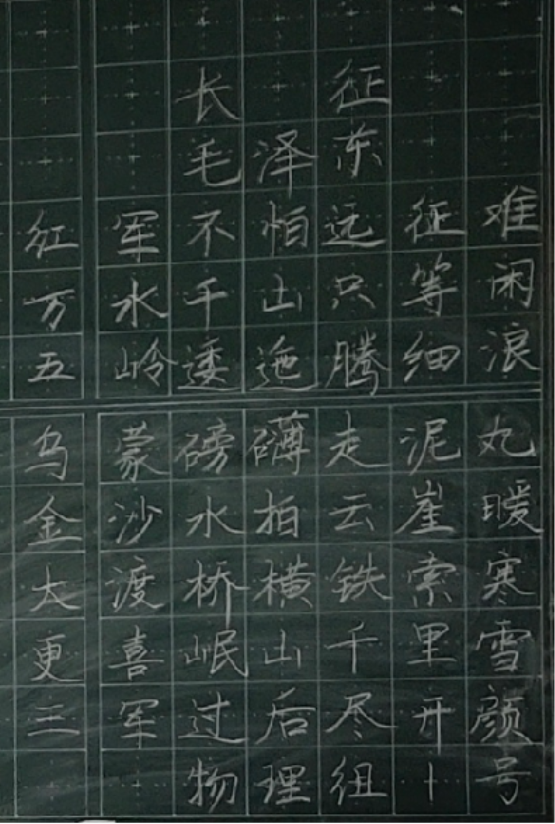 长征
毛泽东
红军不怕远征难
万水千山只等闲
五岭逶迤腾细浪
乌蒙磅礴走泥丸
金沙水拍云崖暖
大渡桥横铁索寒
更喜岷山千里雪
三军过后尽开颜
物理组1号